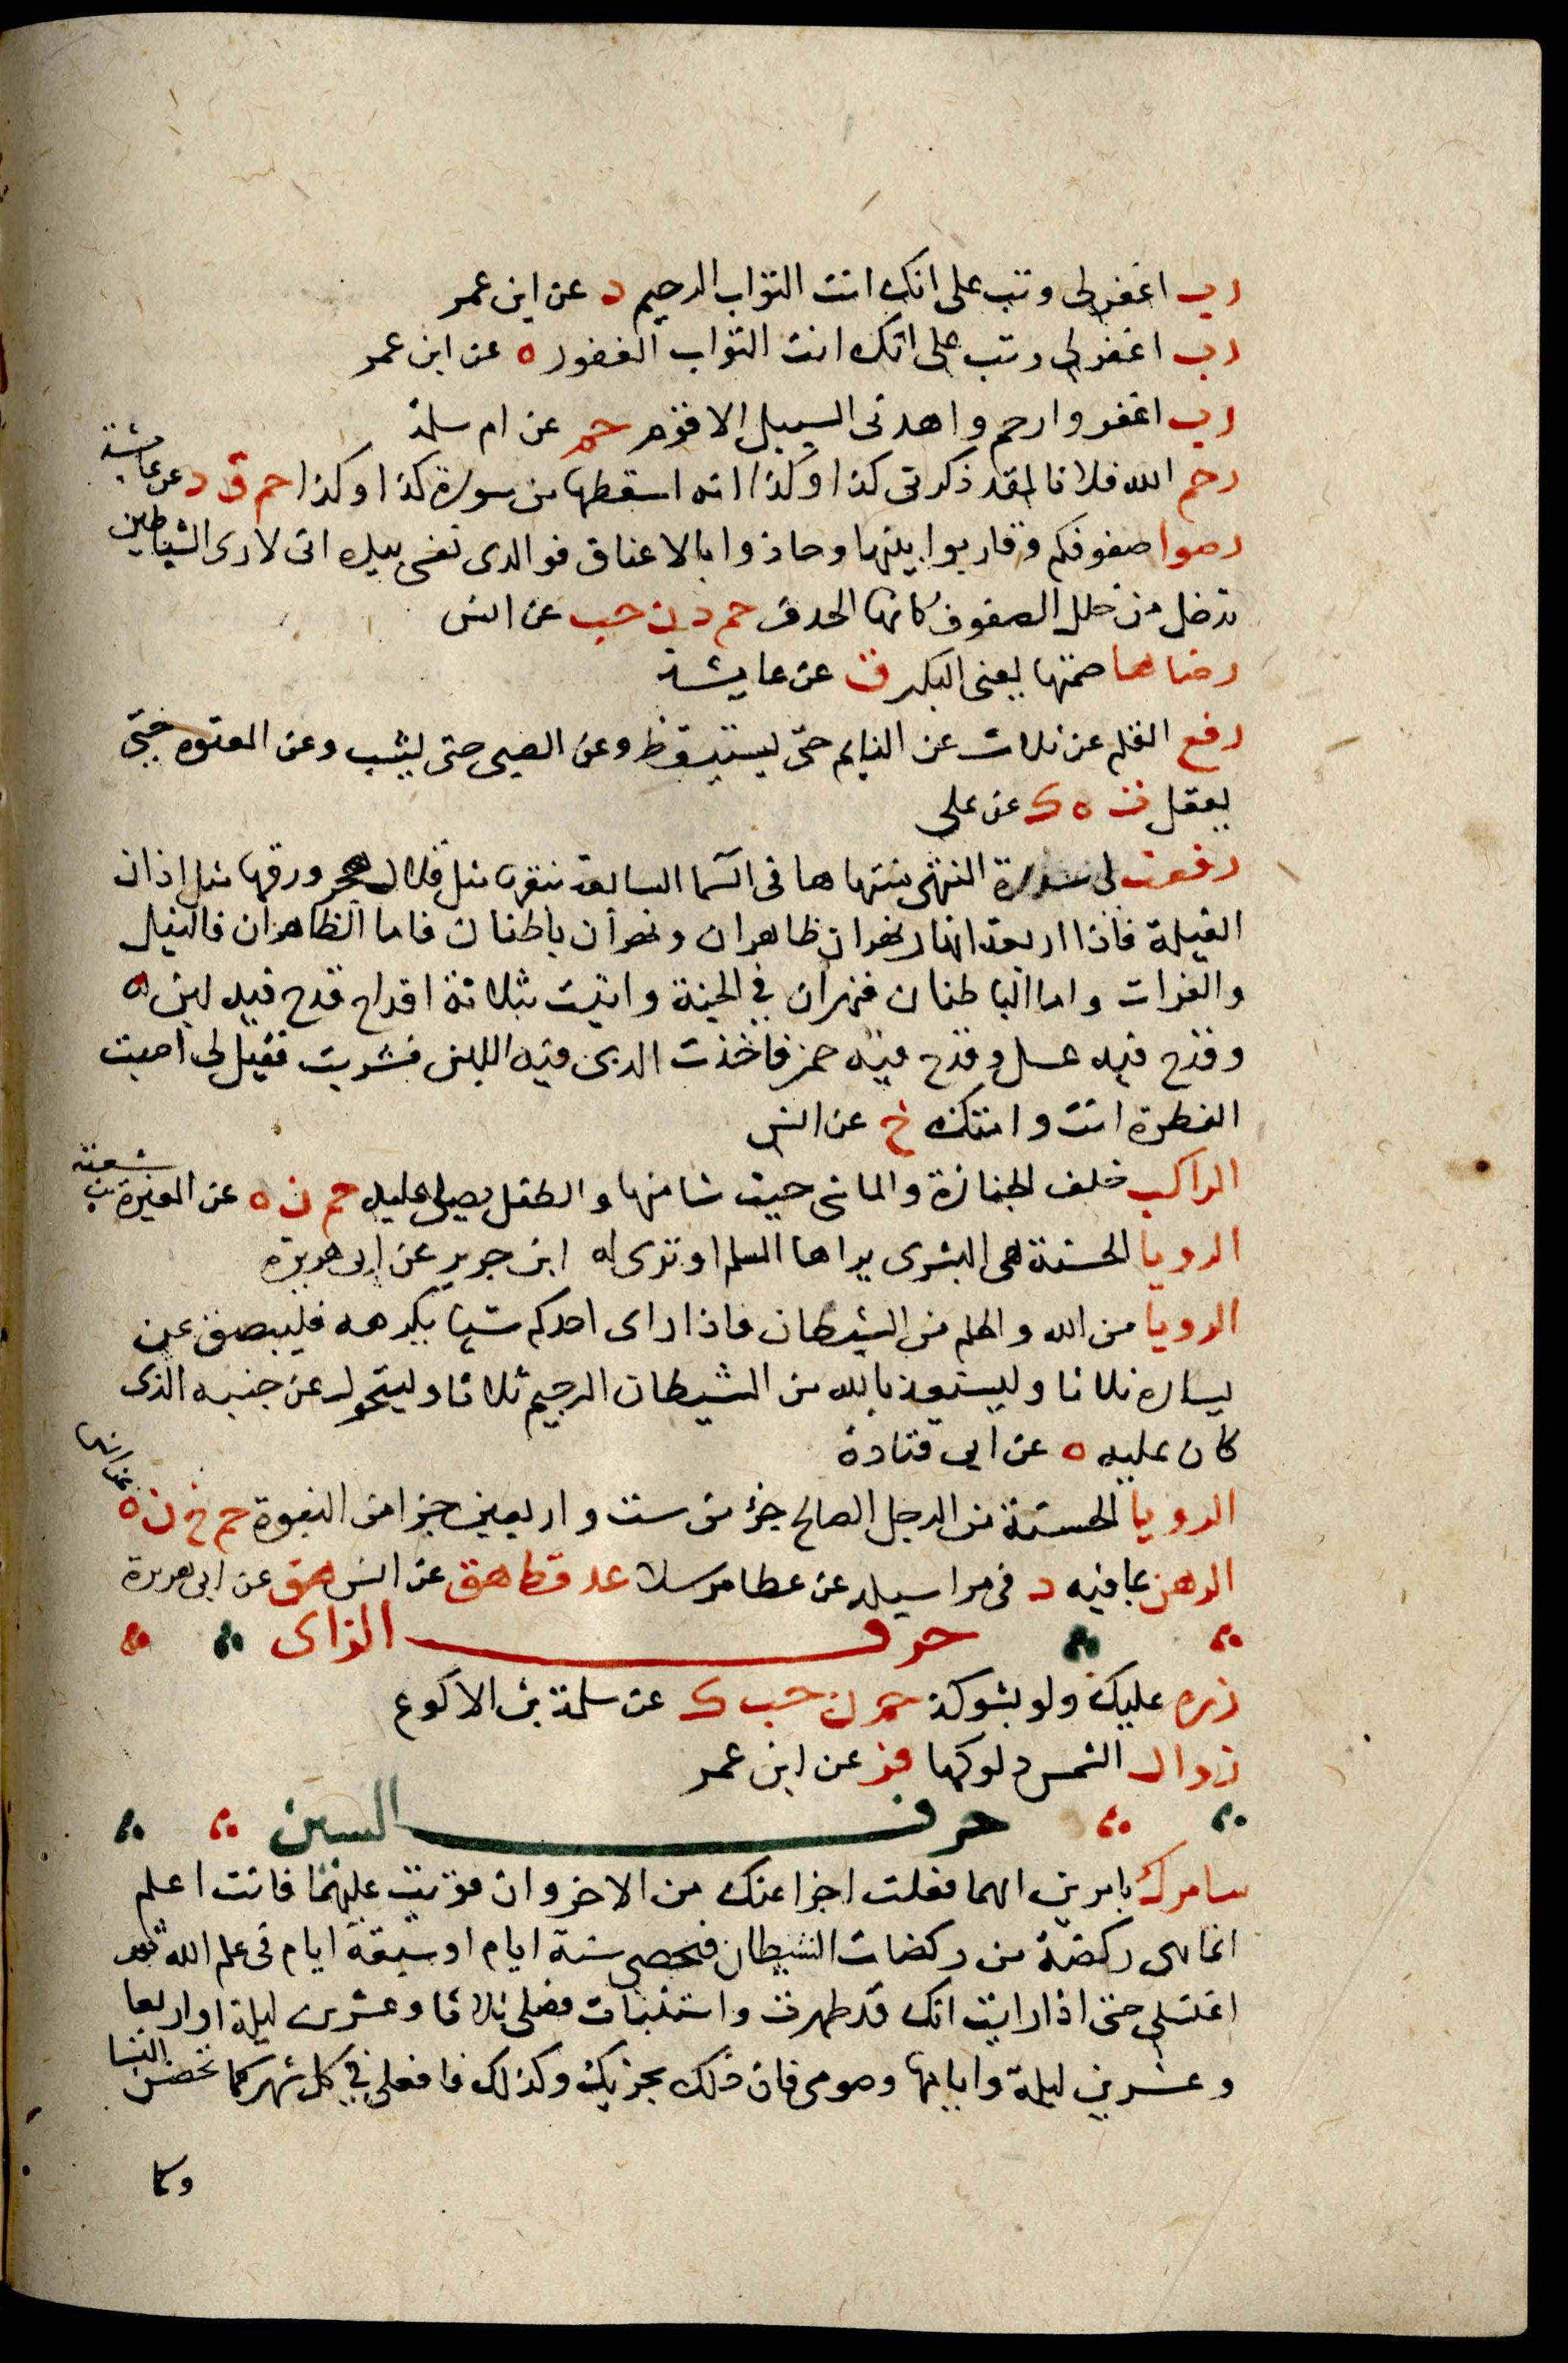 رب اغفر لى وتب على انك انت التواب الرحيم د عن ابن عمر
رب اغفر لى وتب على انك انت التواب الغفور ه عن ابن عمر
رب اغفر وارحم واهدنى السبيل الاقوم حم عن ام سلمة
رحم الله فلانا لقد ذكرنى كذا وكذا اية اسقطها من سورة كذا وكذا حم ق د عن عايشة
رصوا صفوفكم وقاربوا بينها وحاذوا بالاعناق فوالذى نفسى بيده انى لارى الشياطين
تدخل من خلل الصفوف كانها الحذف حم د ن حب عن انس
رضاها صمتها يعنى البكر ق عن عايشة
رفع القلم عن ثلاث عن النايم حتى يستيقظ وعن الصبى حتى يشب وعن المعتوه حتى
يعقل ت ه ك عن على
رفعت لى سدرة المنتهى منتهاها فى السما السابعة نبقها مثل قلال هجر ورقها مثل اذان
الفيلة فاذا اربعة انهار نهران ظاهران ونهران باطنان فاما الظاهران فالنيل
والفرات واما الباطنان فنهران في الجنة واتيت بثلاثة اقداح قدح فيه لبن
وقدح فيه عسل وقدح فيه خمر فاخذت الذى فيه اللبن فشربت فقيل لى اصبت
الفطرة انت وامتك خ عن انس
الراكب خلف الجنازة والماشى حيث شا منها والطفل يصلى عليه حم ن ه عن المغيرة بن شعبة
الرويا الحسنة هى البشرى يراها المسلم او ترى له ابن جرير عن ابى هريرة
الرويا من الله والحلم من الشيطان فاذا راى احدكم شيا يكرهه فليبصق عن
يساره ثلاثا وليستعذ بالله من الشيطان الرجيم ثلاثا وليتحول عن جنبه الذى
كان عليه ه عن ابى قتادة
الرويا الحسنة من الرجل الصالح جزء من ست واربعين جزا من النبوة حم خ ن ه عن انس
الرهن بما فيه د فى مراسيله عن عطا مرسلا عد قط هق عن انس هق عن ابى هريرة
حرف الزاى
زره عليك ولو بشوكة حم ن حب ك عن سلمة بن الاكوع
زوال الشمس دلوكها فر عن ابن عمر
حرف السين
سامرك بامرين ايهما فعلت اجزا عنك من الاخر وان قويت عليهما فانت اعلم
انما هى ركضة من ركضات الشيطان فتحيضى ستة ايام او سبعة ايام فى علم الله ثم
اغتسلى حتى اذا رايت انك قد طهرت واستنقات فصلى ثلاثا وعشرين ليلة او اربعا
وعشرين ليلة وايامها وصومى فان ذلك يجزيك وكذلك فافعلى في كل شهر كما تحيض النسا
وكما